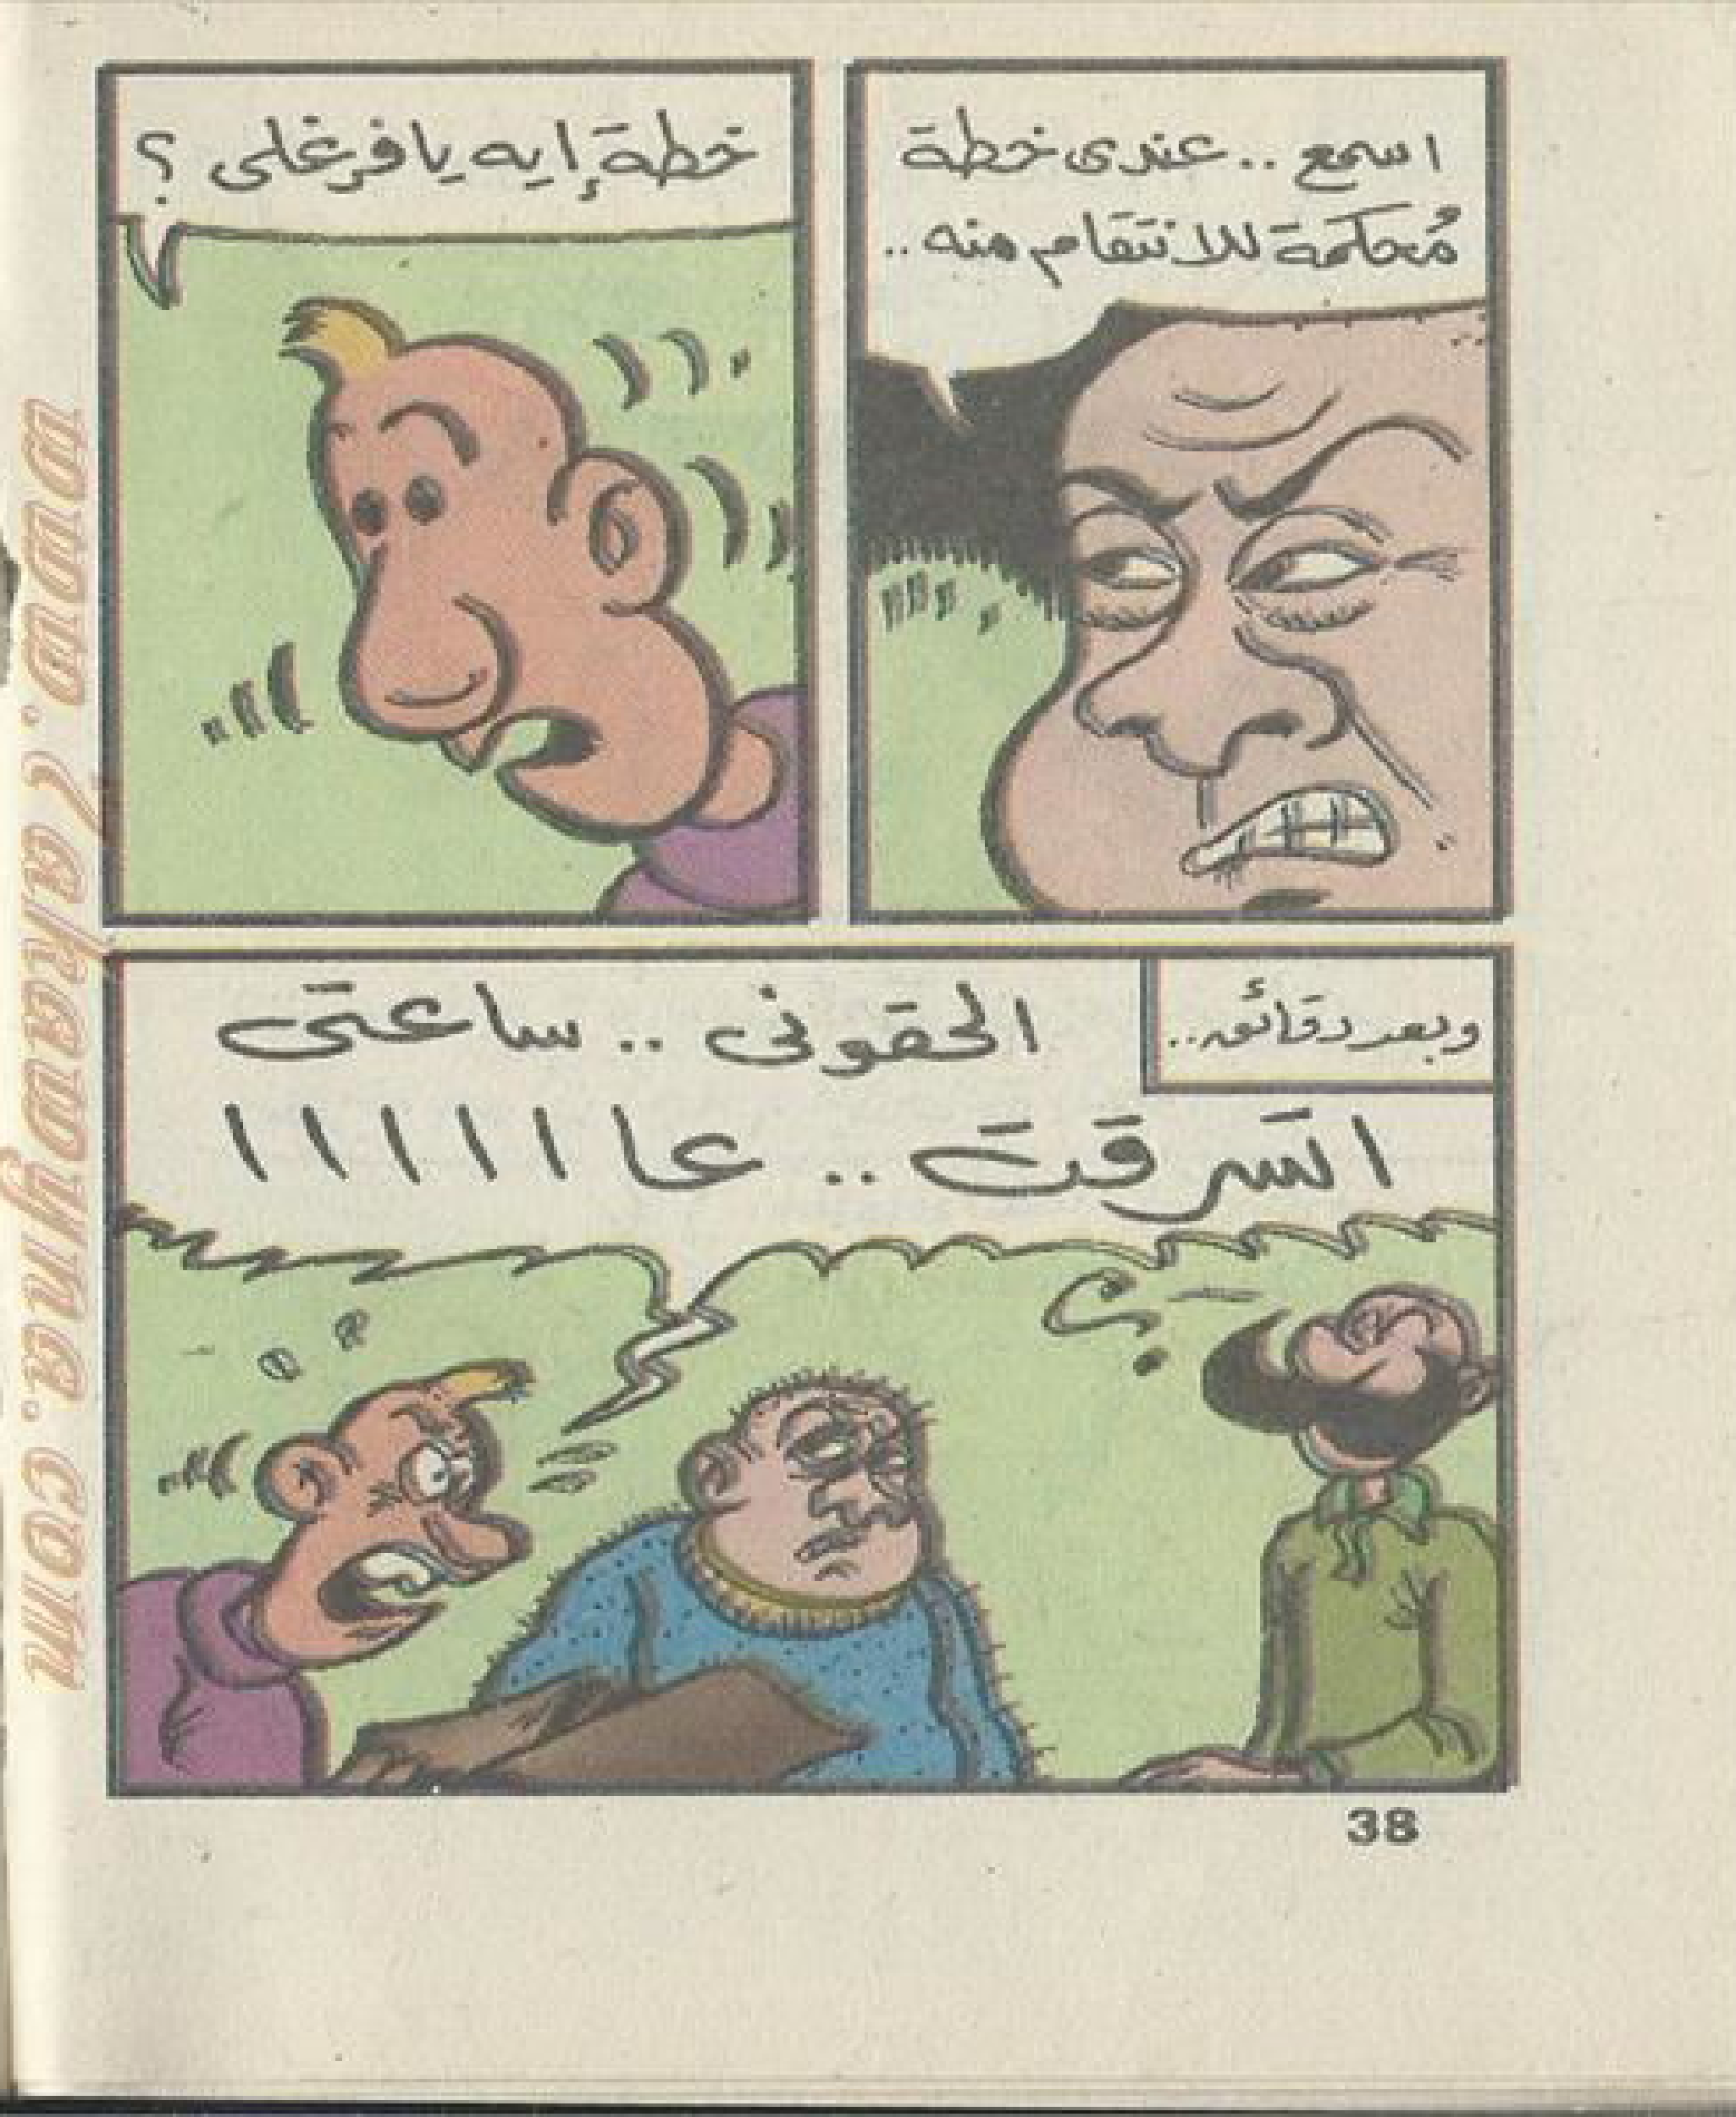 اسمع .. عندى خطة
مُحكمة للانتقام منه ..
خطة إيه يا فرغلى ؟
وبعد دقائق ..
الحقونى .. ساعتى
اتسرقت .. عا ا ا ا ا ا
38
www.2alraawyuna.com